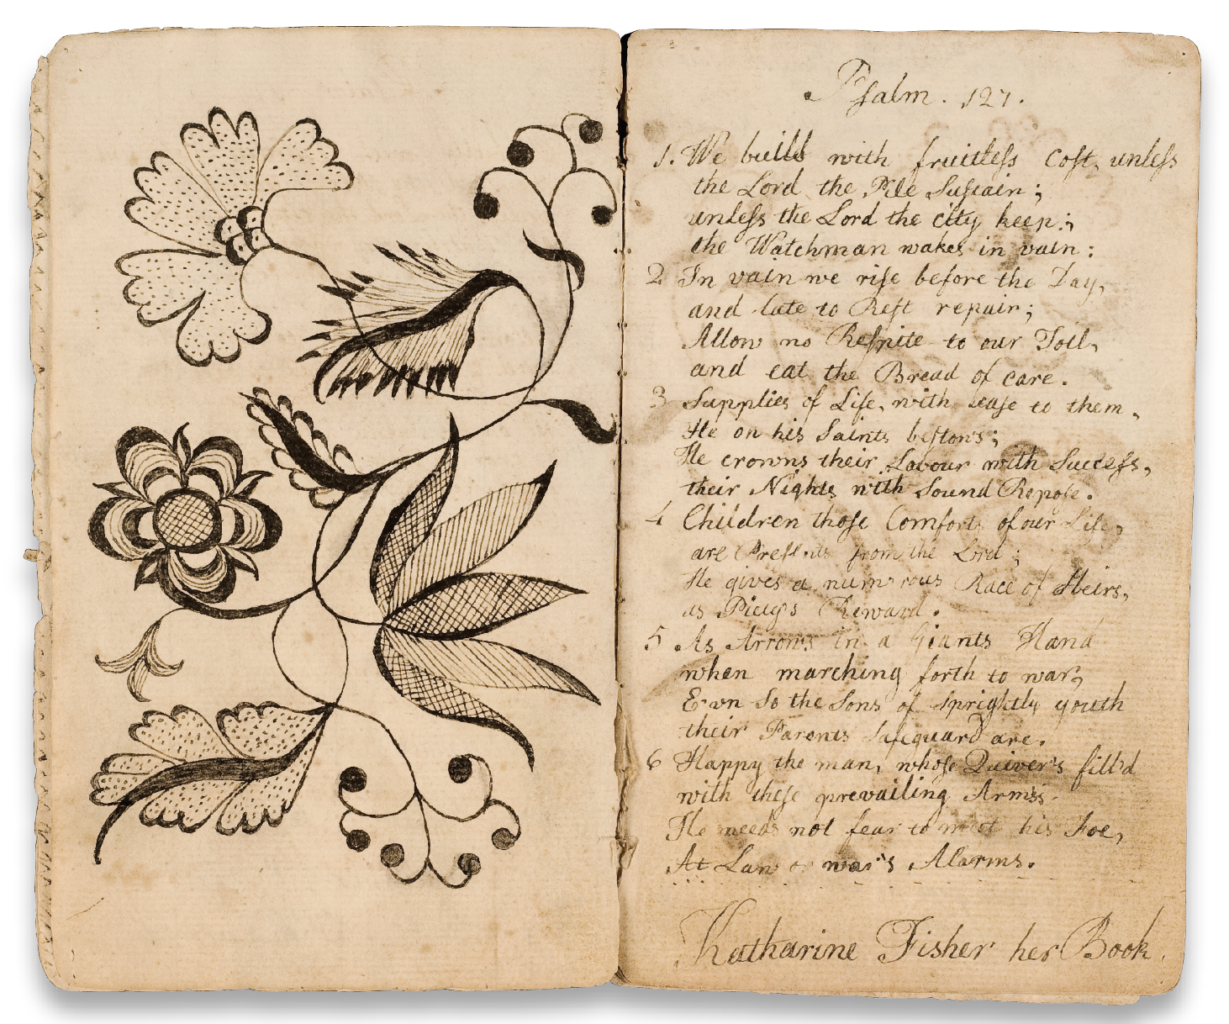 Psalm. 127.
1. We build with fruitleſs Coſt, unleſs
the Lord the Pile Suſtain;
unleſs the Lord the city keep;
the Watchman wakes in vain:
2 In vain we riſe before the Day,
and late to Reſt repair;
Allow no Reſpite to our Toil,
and eat the Bread of care.
3 Supplies of Life, with eaſe to them,
He on his Saints beſtows;
He crowns their Labour with Succeſs,
their Nights with Sound Repoſe.
4 Children thoſe Comforts of our Life,
are Preſents from the Lord;
He gives a num'rous Race of Heirs,
as Piety's Reward.
5 As Arrows in a Giants Hand
when marching forth to war,
Ev'n So the Sons of Sprightly youth
their Parents Safeguard are.
6 Happy the man, whoſe Quiver's fill'd
with theſe prevailing Arms.
He needs not fear to meet his Foe,
At Law or war's Alarms.
Katharine Fisher her Book.